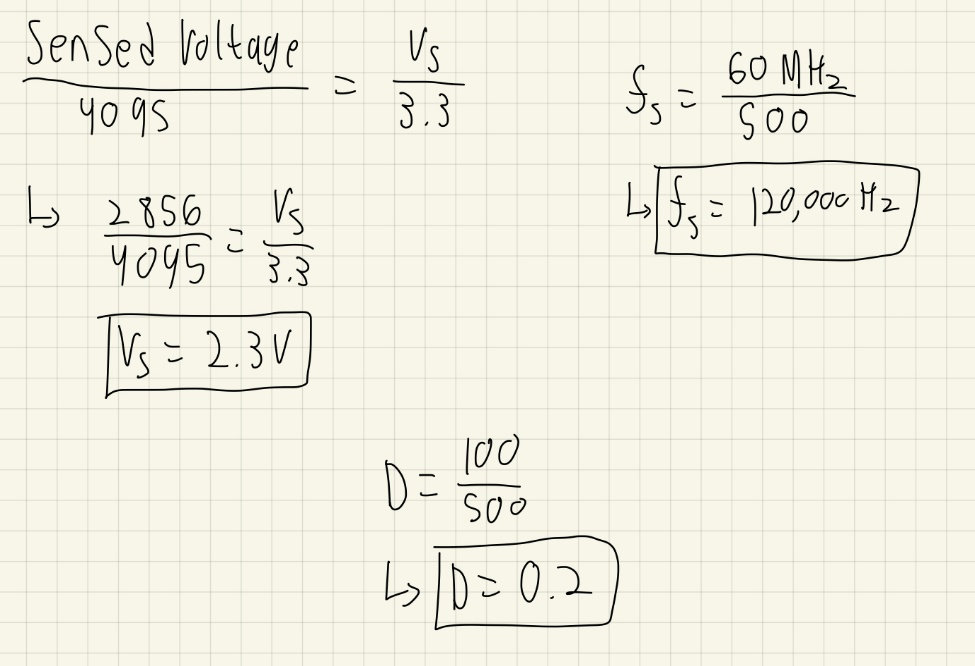 Sensed Voltage / 4095 = Vs / 3.3
↳ 2856 / 4095 = Vs / 3.3
Vs = 2.3 V
fs = 60 MHz / 500
↳ fs = 120,000 Hz
D = 100 / 500
↳ D = 0.2